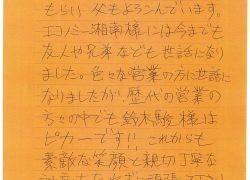 もらい父もよろこんでいます。
エコノミー湘南様には今までも
友人や兄弟なども世話になり
ました。色々な営業の方に世話に
なりましたが、歴代の営業の
方々の中でも鈴木駿様は
ピカ一です!! これからも
素敵な笑顔と親切丁寧な